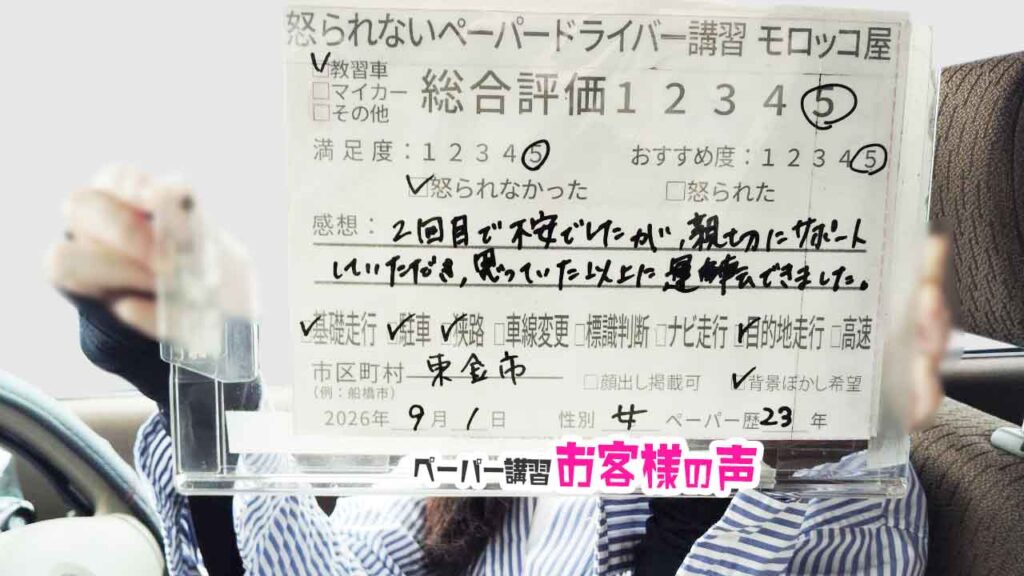 怒られないペーパードライバー講習 モロッコ屋
✓教習車
□マイカー
□その他
総合評価 1 2 3 4 5
満足度：1 2 3 4 5 おすすめ度：1 2 3 4 5
✓怒られなかった □怒られた
感想：2回目で不安でしたが、親切にサポート
していただき、思っていた以上に運転できました。
✓基礎走行 ✓駐車 ✓狭路 □車線変更 □標識判断 □ナビ走行 ✓目的地走行 □高速
市区町村 東金市
（例：船橋市）
□顔出し掲載可 ✓背景ぼかし希望
2026年 9月 1日 性別 女 ペーパー歴23年
ペーパー講習 お客様の声